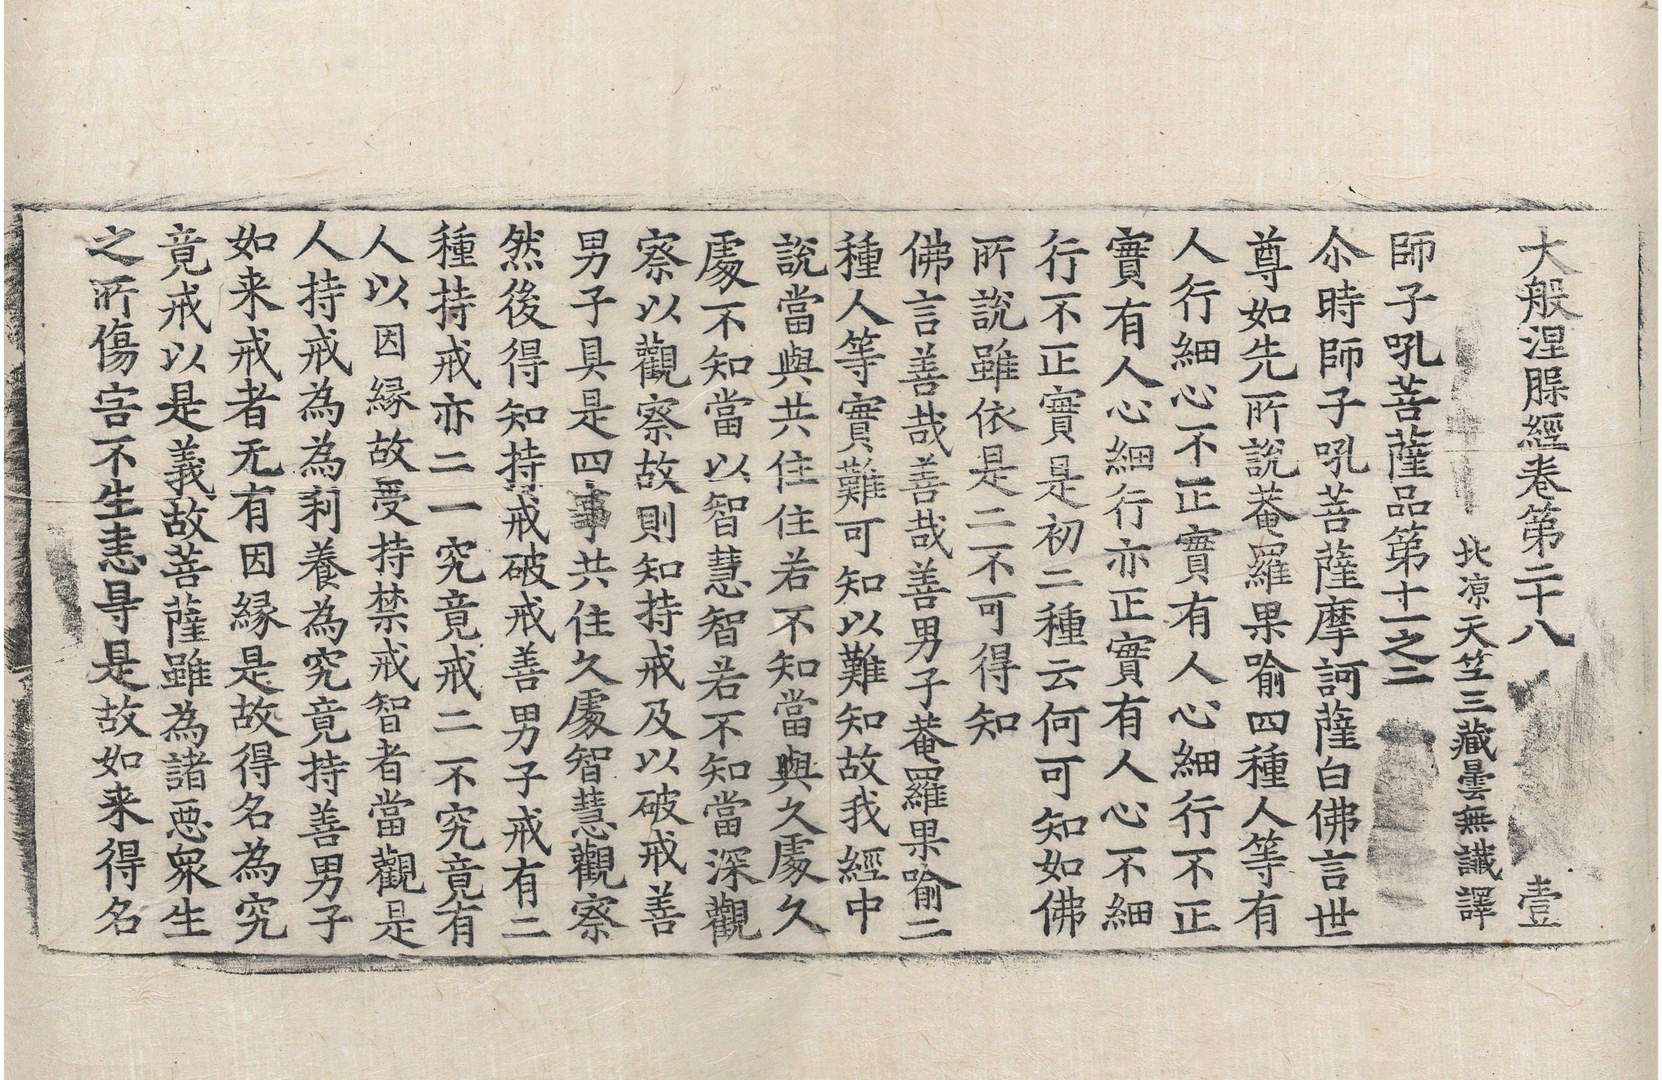 大般涅脲經卷第二十八　壹
北凉天竺三藏曇無讖譯
師子吼菩薩品第十一之二
尒時師子吼菩薩摩訶薩白佛言世
尊如先所說菴羅果喻四種人等有
人行細心不正實有人心細行不正
實有人心細行亦正實有人心不細
行不正實是初二種云何可知如佛
所說雖依是二不可得知
佛言善哉善哉善男子菴羅果喻二
種人等實難可知以難知故我經中
說當與共住住若不知當與久處久
處不知當以智慧智若不知當深觀
察以觀察故則知持戒及以破戒善
男子具是四事共住久處智慧觀察
然後得知持戒破戒善男子戒有二
種持戒亦二一究竟戒二不究竟有
人以因縁故受持禁戒智者當觀是
人持戒為為利養為究竟持善男子
如来戒者无有因縁是故得名為究
竟戒以是義故菩薩雖為諸惡衆生
之所傷害不生恚㝵是故如来得名